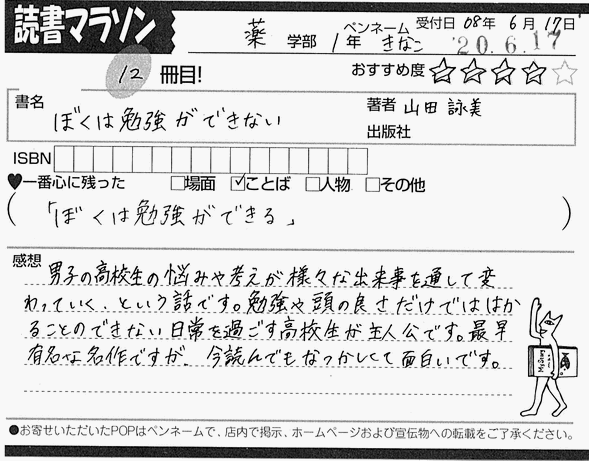 読書マラソン
薬 学部 1年 ペンネーム きなこ 受付日 08年 6月 17日
'20.6.17
12 冊目! おすすめ度 ★★★★☆
書名 ぼくは勉強ができない
著者 山田 詠美
出版社
ISBN
♥一番心に残った □場面 ☑ことば □人物 □その他
(「ぼくは勉強ができる」)
感想
男子の高校生の悩みや考えが様々な出来事を通して変
わっていく、という話です。勉強や頭の良さだけでははか
ることのできない日常を過ごす高校生が主人公です。最早
有名な名作ですが、今読んでもなつかしくて面白いです。
●お寄せいただいたPOPはペンネームで、店内で掲示、ホームページおよび宣伝物への転載をご了承ください。